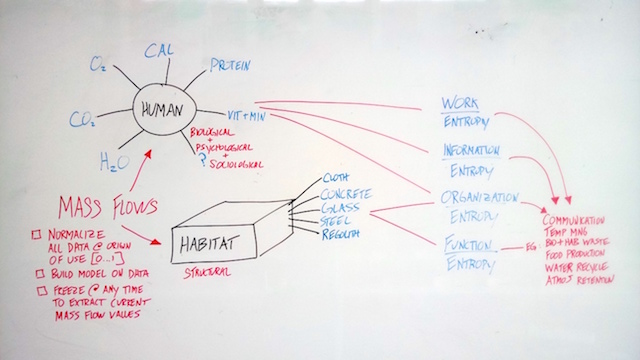 CAL
O₂
PROTEIN
CO₂
HUMAN
VIT+MIN
H₂O
BIOLOGICAL
+
PSYCHOLOGICAL
+
? SOCIOLOGICAL
MASS FLOWS
NORMALIZE
ALL DATA @ ORIGIN
OF USE [0...1]
BUILD MODEL ON DATA
FREEZE @ ANY TIME
TO EXTRACT CURRENT
MASS FLOW VALUES
HABITAT
STRUCTURAL
CLOTH
CONCRETE
GLASS
STEEL
REGOLITH
WORK
ENTROPY
INFORMATION
ENTROPY
ORGANIZATION
ENTROPY
FUNCTION
ENTROPY
EG:
COMMUNICATION
TEMP MNG
BIO+HAB WASTE
FOOD PRODUCTION
WATER RECYCLE
ATMOS RETENTION